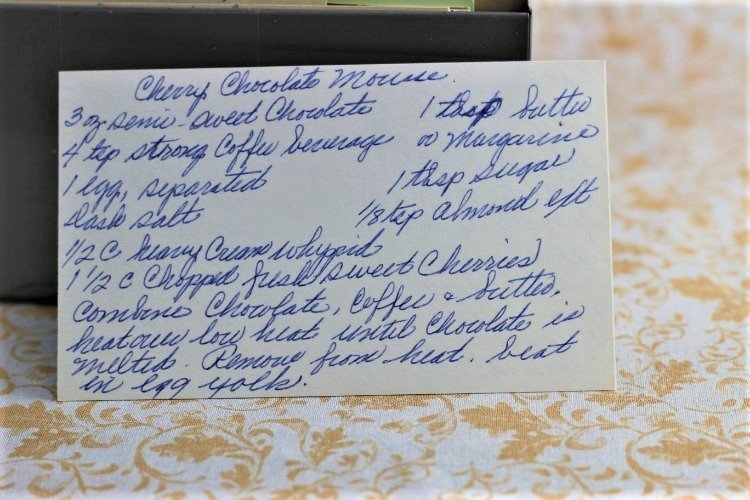 Cherry Chocolate Mousse.
3 oz semi-sweet Chocolate 1 tbsp butter
4 tsp strong Coffee beverage or Margarine
1 egg, separated 1 tbsp Sugar
dash salt 1/8 tsp Almond eft
1/2 C heavy Cream whyppid
1 1/2 C Chopped fresh sweet Cherries
Combine Chocolate, Coffee & butter.
heat over low heat until Chocolate is
melted. Remove from heat. beat
in egg yolk.